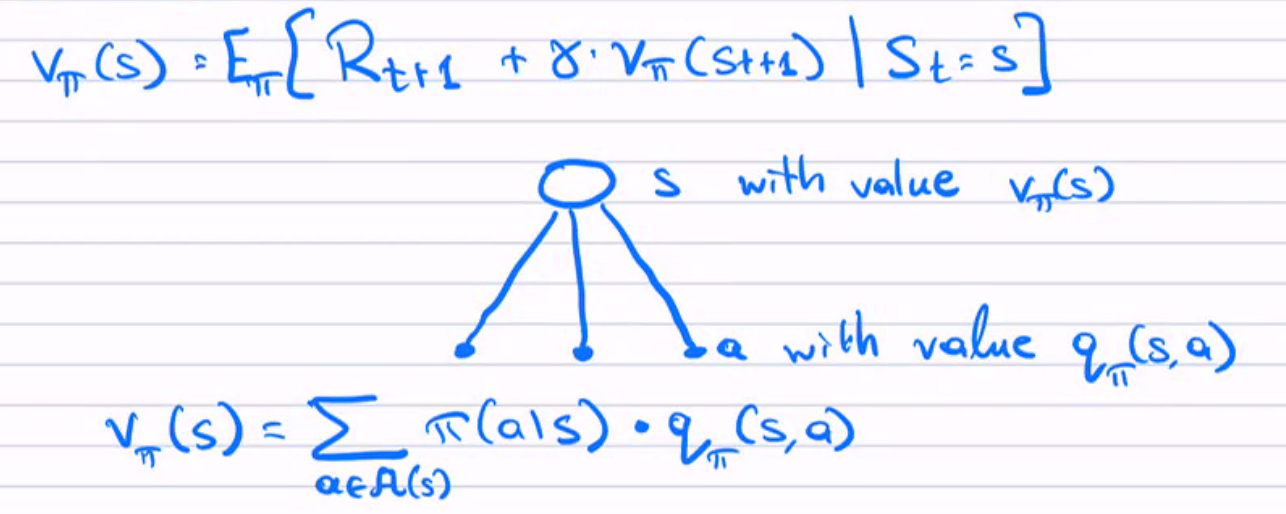 v_π(s) = E_π[R_{t+1} + γ · v_π(s_{t+1}) | S_t = s]
s with value v_π(s)
a with value q_π(s,a)
v_π(s) = ∑_{a∈A(s)} π(a|s) · q_π(s,a)